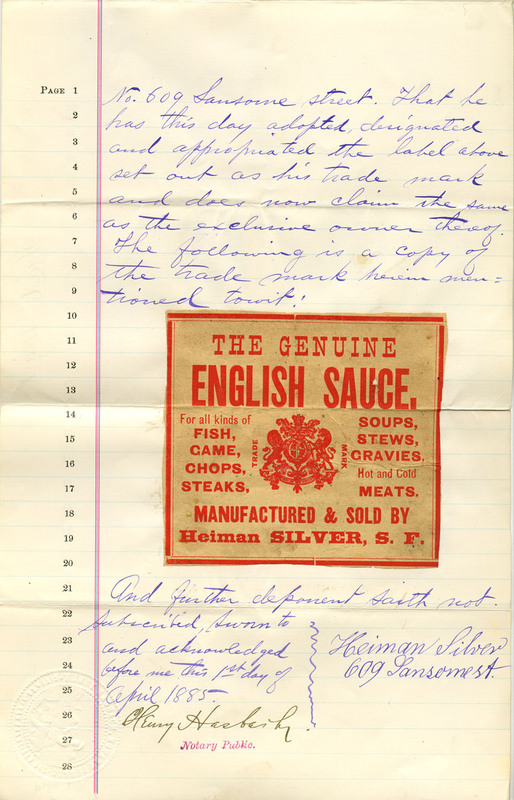 PAGE 1
No. 609 Sansome street. That he
2
has this day adopted, designated
3
and appropriated the label above
4
set out as his trade mark
5
and does now claim the same
6
as the exclusive owner thereof.
7
The following is a copy of
8
the trade mark herein men=
9
tioned towit:
10
11
THE GENUINE
12
ENGLISH SAUCE.
13
14
For all kinds of
FISH,
GAME,
CHOPS,
STEAKS,
TRADE
MARK
SOUPS,
STEWS,
GRAVIES,
Hot and Cold
MEATS.
15
16
17
18
MANUFACTURED & SOLD BY
19
Heiman SILVER, S. F.
20
21
And further deponent saith not.
22
Subscribed, sworn to
23
and acknowledged
24
before me this 1st day of
25
April 1885
Heiman Silver
609 Sansome St.
26
Henry
27
Notary Public.
28